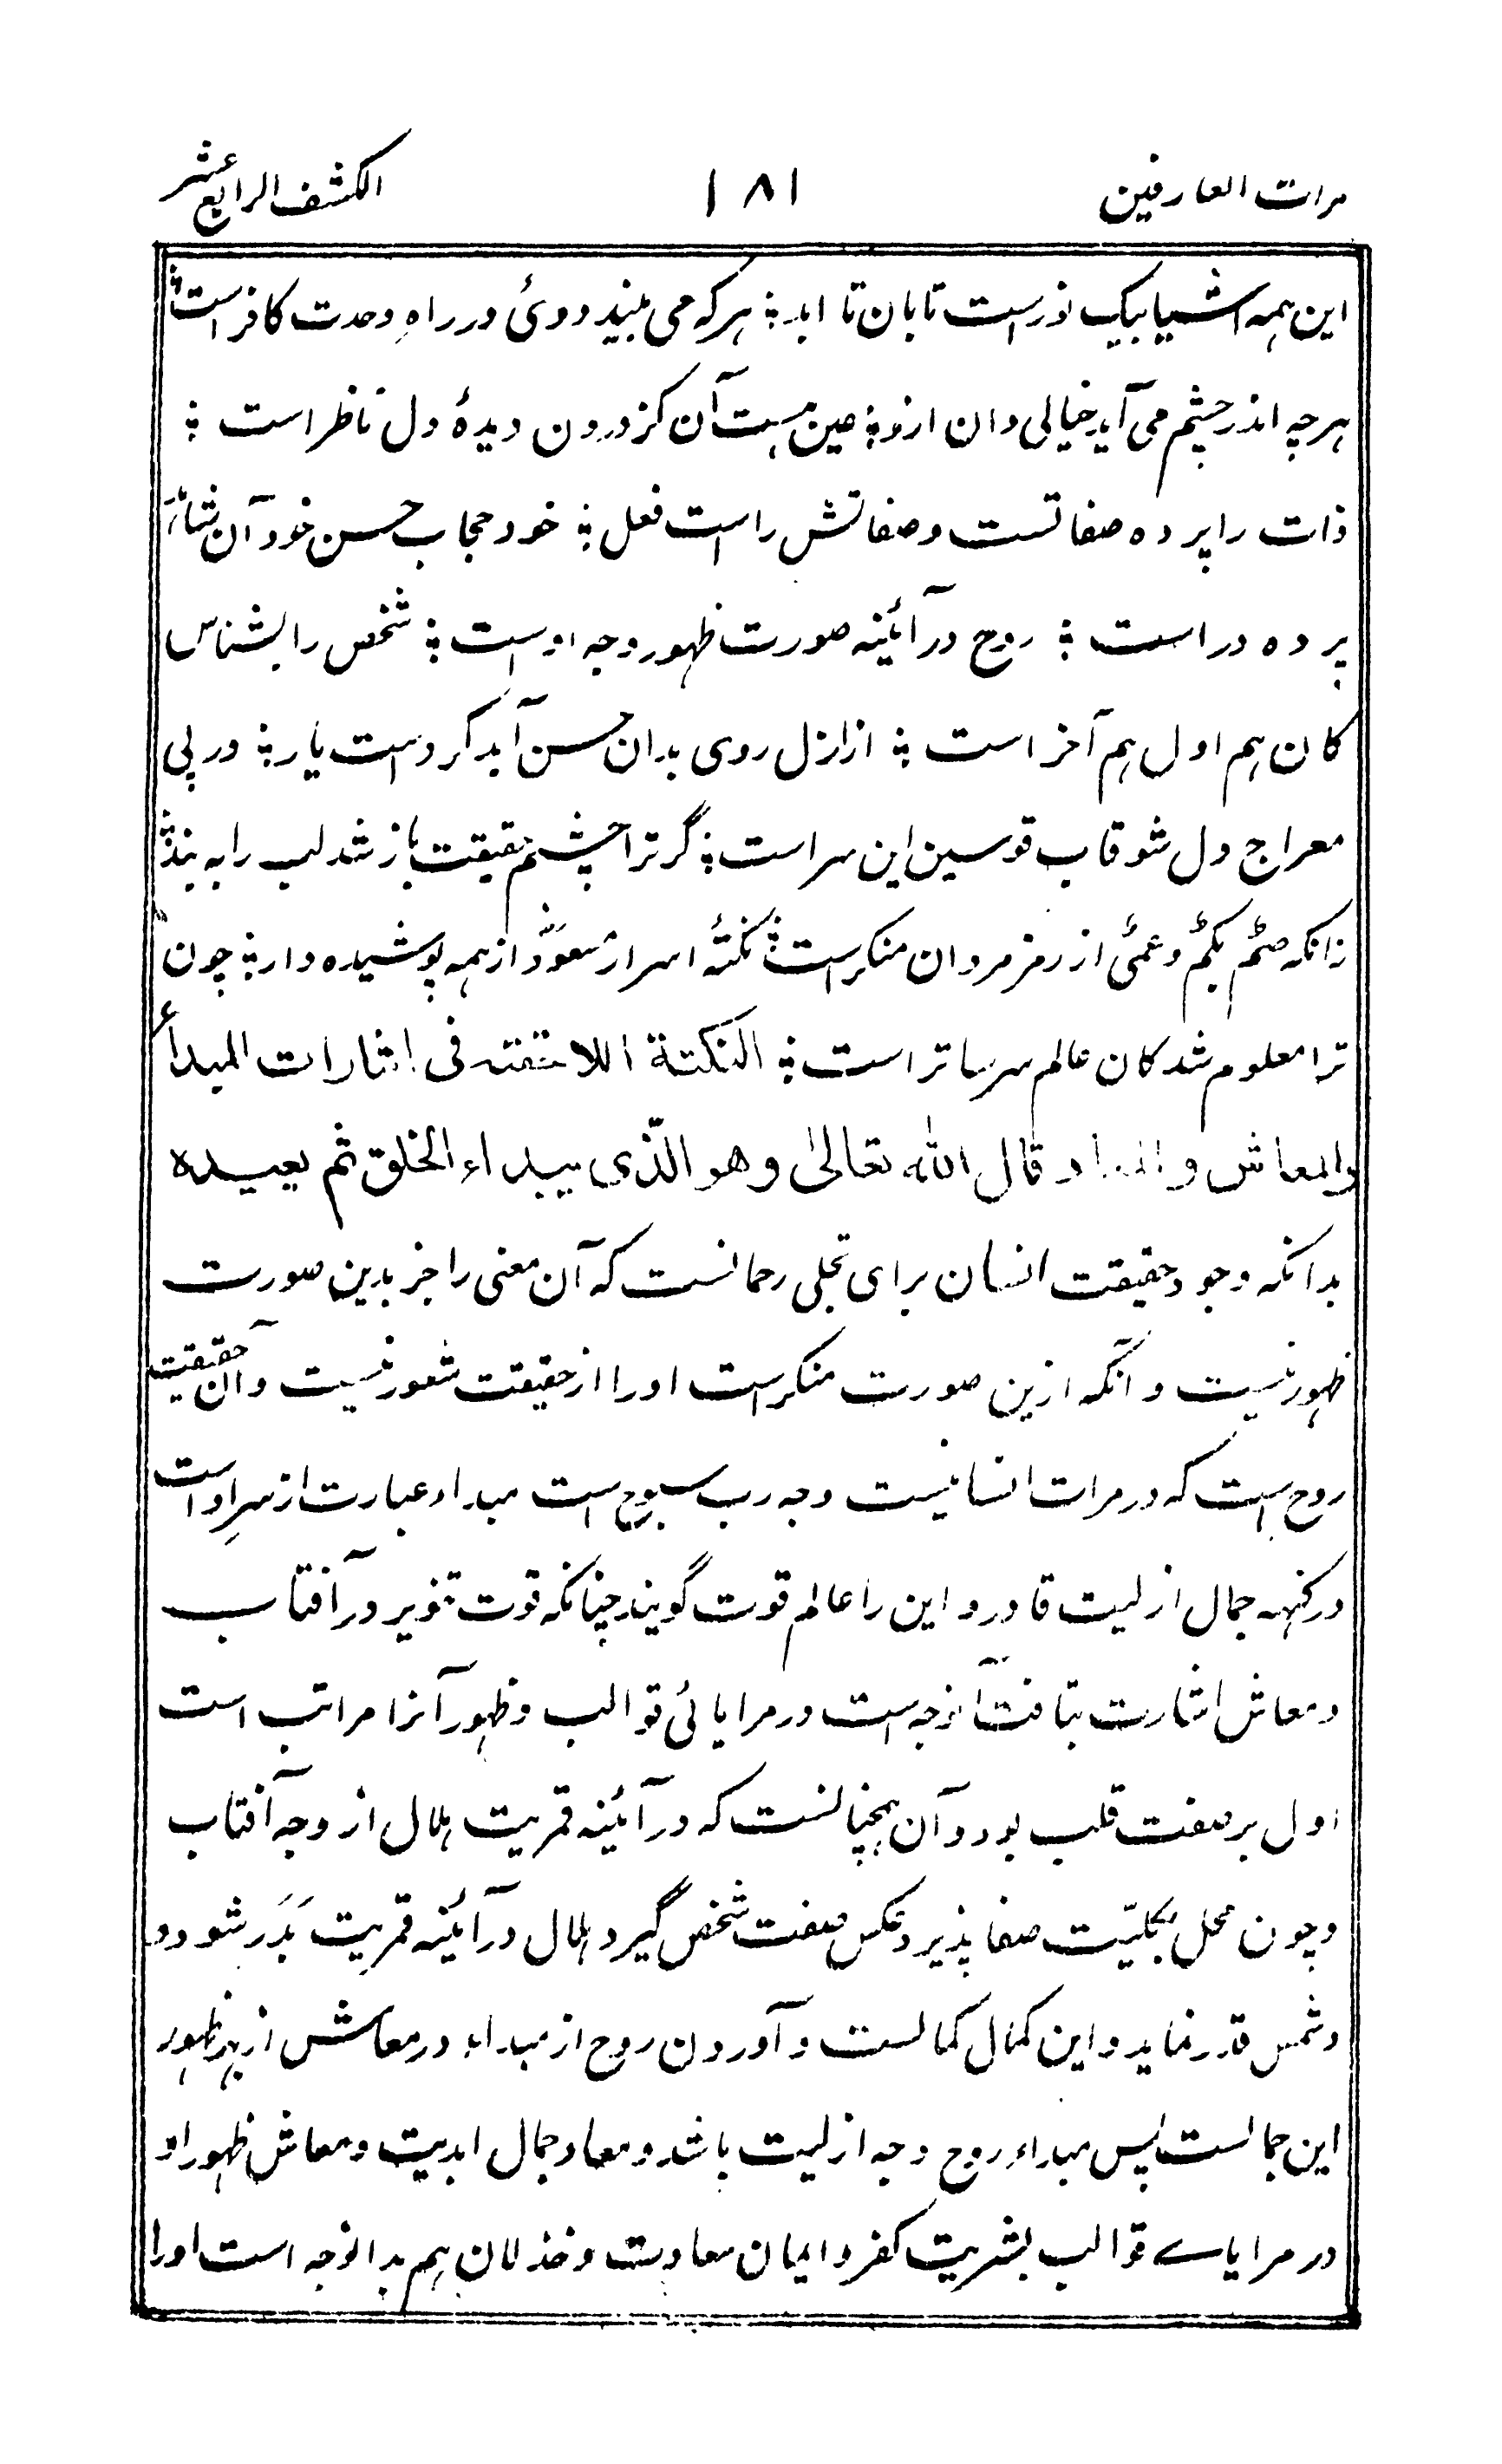 مرات العارفین ۱۸۱ الکشف الرابع عشر
این همه اشیا بیک نورست تابان تا ابد ؞ هر که می بیند دوئ در راهِ وحدت کافر است ؞
هر چه اندر چشم می آید خیالی دان ازو ؞ عین هست آن کز درون دیدهٔ دل ناظر است ؞
ذات را پرده صفاتست و صفاتش راست فعل ؞ خود حجاب حسن خود آن شاہد
پرده در است ؞ روح در آئینه صورت ظهور وجه اوست ؞ شخص را بشناس
کان هم اول هم آخر است ؞ از ازل روی بدان حسن آبد کردست یار ؞ در پی
معراج دل شو قاب قوسین این سراست ؞ گر ترا چشم حقیقت باز شد لب را به بند ؞
زانکه صمٌ بکمٌ و عمیٌ از رمز مردان منکرست ؞ نکتهٔ اسرار مسعود از همه پوشیده دار ؞ چون
ترا معلوم شد کان عالم سر ساتر است ؞ النکتة اللائقته فی اشارات المبدأ
والمعاش والمعاد قال الله تعالیٰ وهو الّذی یبداء الخلق ثم یعیده
بدانکه وجود حقیقت انسان برای تجلی رحمانست که آن معنی را جز بدین صورت
ظهور نیست و آنکه ازین صورت منکرست او را از حقیقت شعور نیست و آن حقیقت
روح است که در مرات انسانیست وجه رب سبوح است مبداء عبارت از سرِ اوست
در کنهه جمال ازلیت قادر و این را عالم قوت گویند چنانکه قوت تنویر در آفتاب
و معاش اشارت بتافت آنوجه است در مرایائی قوالب و ظهور آنرا مراتب است
اول بر صفت قلب بود و آن همچنانست که در آئینه قمریت هلال از وجه آفتاب
و چون محل بکلیّت صفا پذیرد عکس صفت شخص گیرد هلال در آئینه قمریت بَدَر شود و
و شمس قدر نماید و این کمال کمالست و آوردن روح از مبداء در معاش از بهر ظهور
این جمالست پس مبداءِ روح وجه ازلیت باشد و معاد جمال ابدیت و معاش ظهور او
در مرایاے قوالب بشریت کفر و ایمان سعادت و خذلان هم بدانوجه است او را